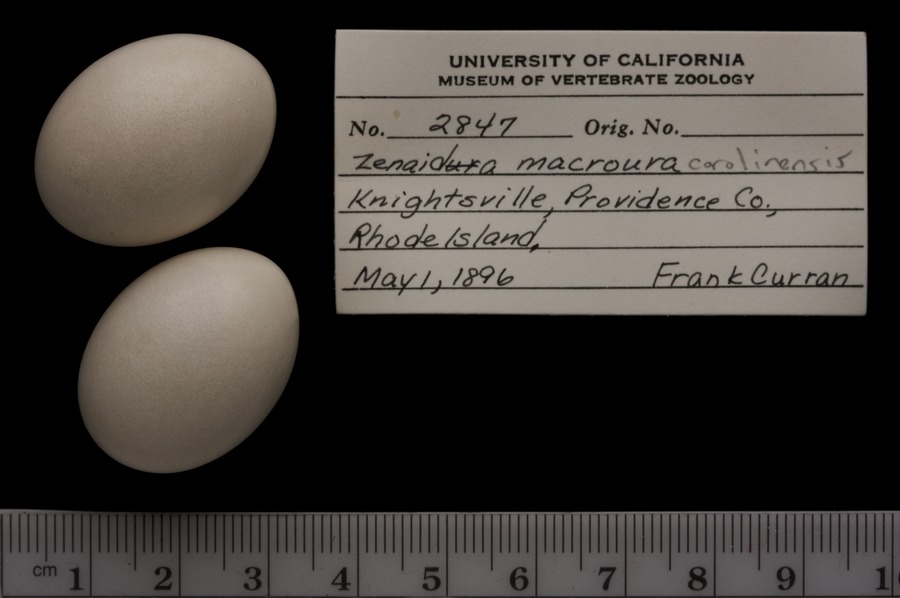 UNIVERSITY OF CALIFORNIA
MUSEUM OF VERTEBRATE ZOOLOGY
No. 2847 Orig. No.
Zenaidura macroura carolinensis
Knightsville, Providence Co.,
Rhode Island,
May 1, 1896 Frank Curran
cm 1 2 3 4 5 6 7 8 9 1